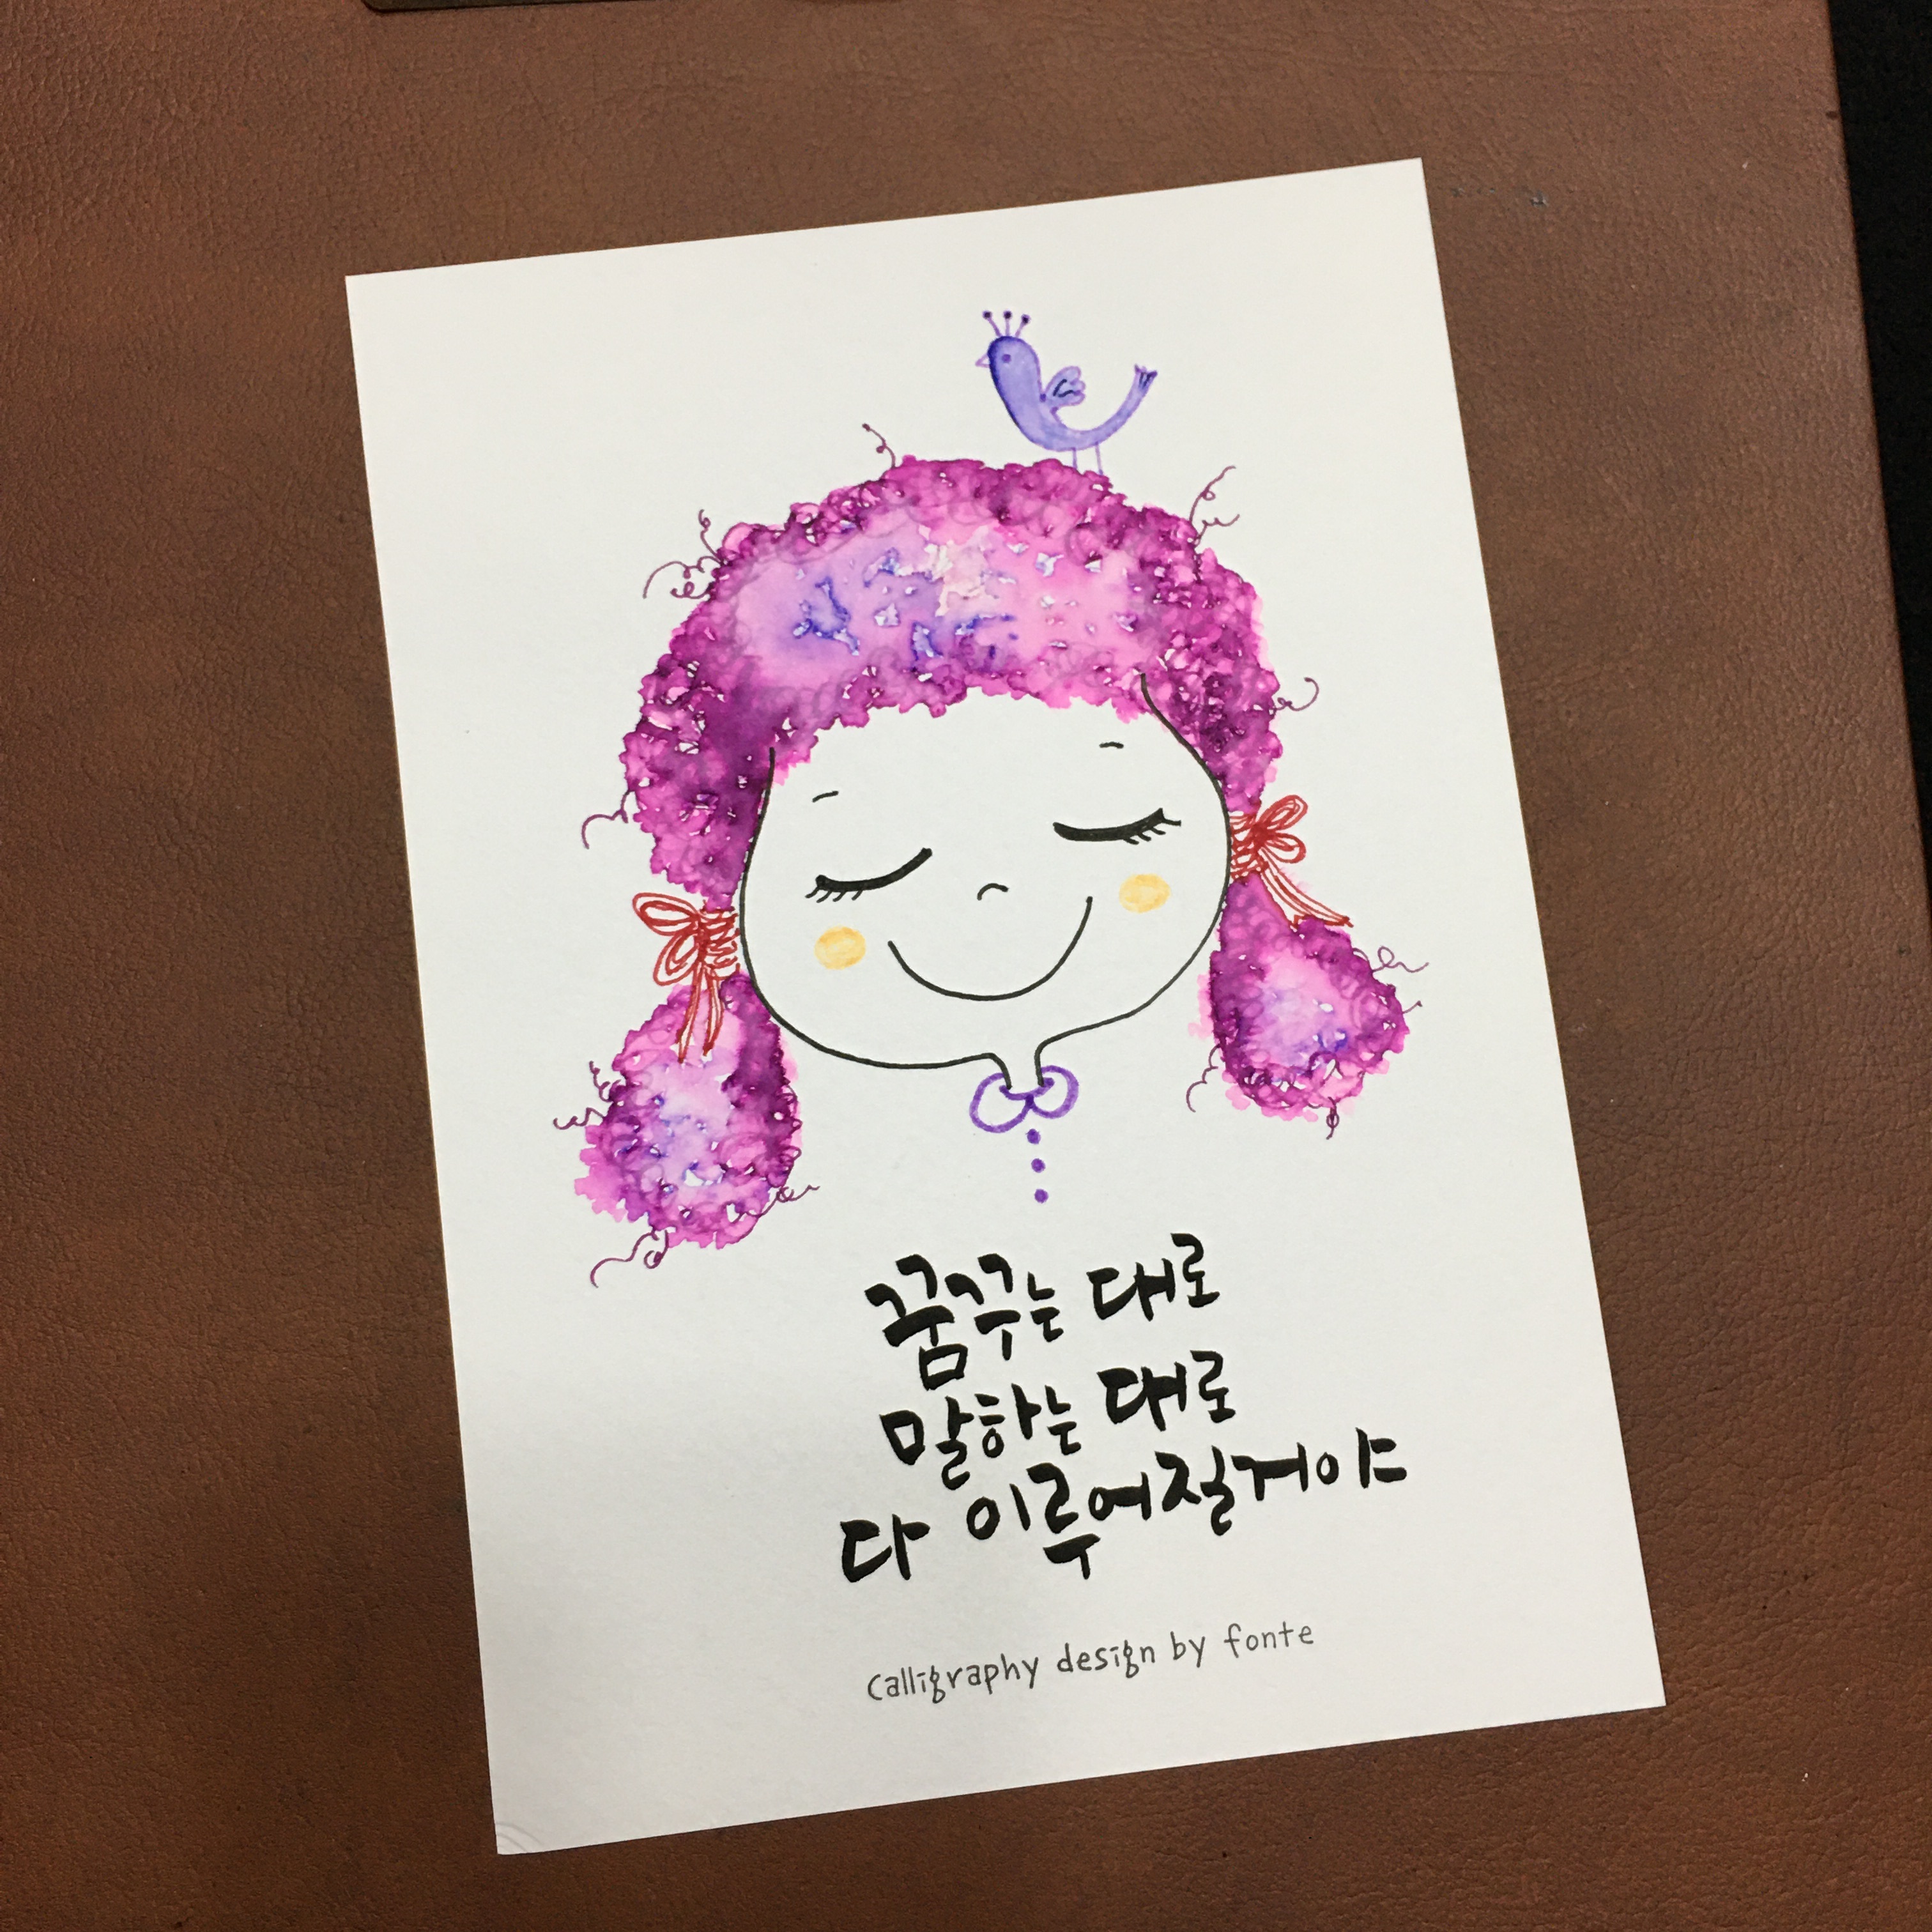 꿈꾸는 대로
말하는 대로
다 이루어질거야
calligraphy design by fonte